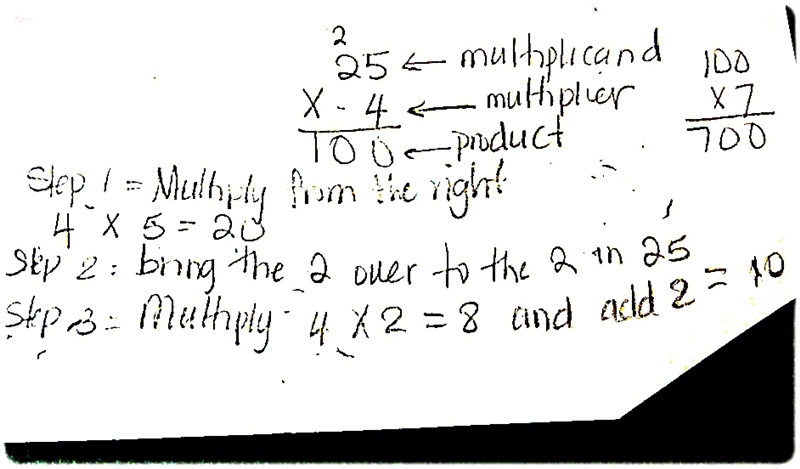 2
25 ← multiplicand
X - 4 ← multiplier
100 ← product
100
X 7
700
Step 1 = Multiply from the right
4 X 5 = 20
Step 2: bring the 2 over to the 2 in 25
Step 3 = Multiply 4 X 2 = 8 and add 2 = 10